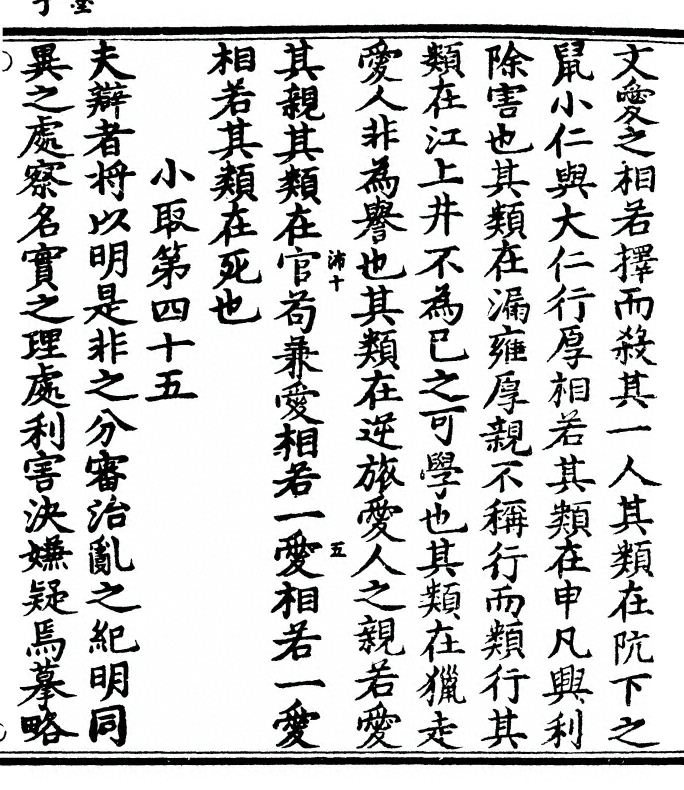 文愛之相若擇而殺其一人其類在阬下之
鼠小仁與大仁行厚相若其類在申凡興利
除害也其類在漏雍厚親不稱行而類行其
類在江上井不為已之可學也其類在獵走
愛人非為譽也其類在逆旅愛人之親若愛
其親其類在官苟兼愛相若一愛相若一愛
沛十
五
相若其類在死也
小取第四十五
夫辯者將以明是非之分審治亂之紀明同
異之處察名實之理處利害決嫌疑焉摹略